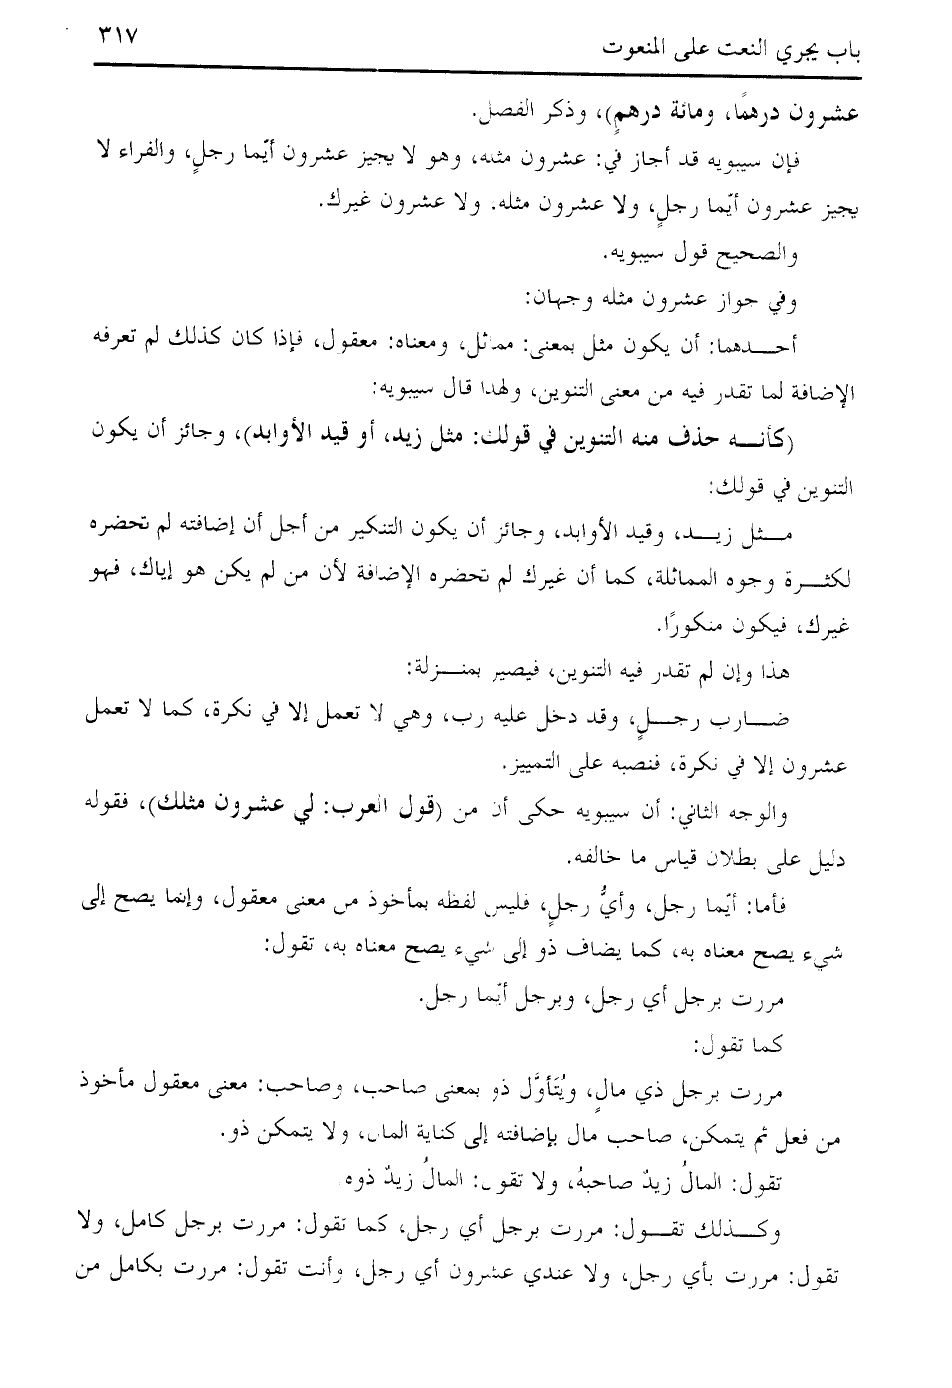 باب يجري النعت على المنعوت
٣١٧
عشرون درهمًا، ومائة درهمٍ)، وذكر الفصل.
فإن سيبويه قد أجاز في: عشرون مثله، وهو لا يجيز عشرون أيّما رجلٍ، والفراء لا
يجيز عشرون أيّما رجلٍ، ولا عشرون مثله. ولا عشرون غيرك.
والصحيح قول سيبويه.
وفي جواز عشرون مثله وجهان:
أحـــدهما: أن يكون مثل بمعنى: مماثل، ومعناه: معقول، فإذا كان كذلك لم تعرفه
الإضافة لما تقدر فيه من معنى التنوين، ولهذا قال سيبويه:
(كأنـــه حذف منه التنوين في قولك: مثل زيد، أو قيد الأوابد)، وجائز أن يكون
التنوين في قولك:
مـــثل زيـــد، وقيد الأوابد، وجائز أن يكون التنكير من أجل أن إضافته لم تحضره
لكثـــرة وجوه المماثلة، كما أن غيرك لم تحضره الإضافة لأن من لم يكن هو إياك، فهو
غيرك، فيكون منكورًا.
هذا وإن لم تقدر فيه التنوين، فيصير بمنـــزلة:
ضـــارب رجـــلٍ، وقد دخل عليه رب، وهي لا تعمل إلا في نكرة، كما لا تعمل
عشرون إلا في نكرة، فنصبه على التمييز.
والوجه الثاني: أن سيبويه حكى أن من (قول العرب: لي عشرون مثلك)، فقوله
دليل على بطلان قياس ما خالفه.
فأما: أيّما رجل، وأيُّ رجلٍ، فليس لفظه بمأخوذ من معنى معقول، وإنما يصح إلى
شيء يصح معناه به، كما يضاف ذو إلى شيء يصح معناه به، تقول:
مررت برجل أي رجل، وبرجل أيّما رجل.
كما تقول:
مررت برجل ذي مالٍ، ويُتَأوَّل ذو بمعنى صاحب، وصاحب: معنى معقول مأخوذ
من فعل ثم يتمكن، صاحب مال بإضافته إلى كناية المال، ولا يتمكن ذو.
تقول: المالُ زيدٌ صاحبهُ، ولا تقول: المالُ زيدٌ ذوه
وكـــذلك تقـــول: مررت برجل أي رجل، كما تقول: مررت برجل كامل، ولا
تقول: مررت بأي رجل، ولا عندي عشرون أي رجل، وأنت تقول: مررت بكامل من